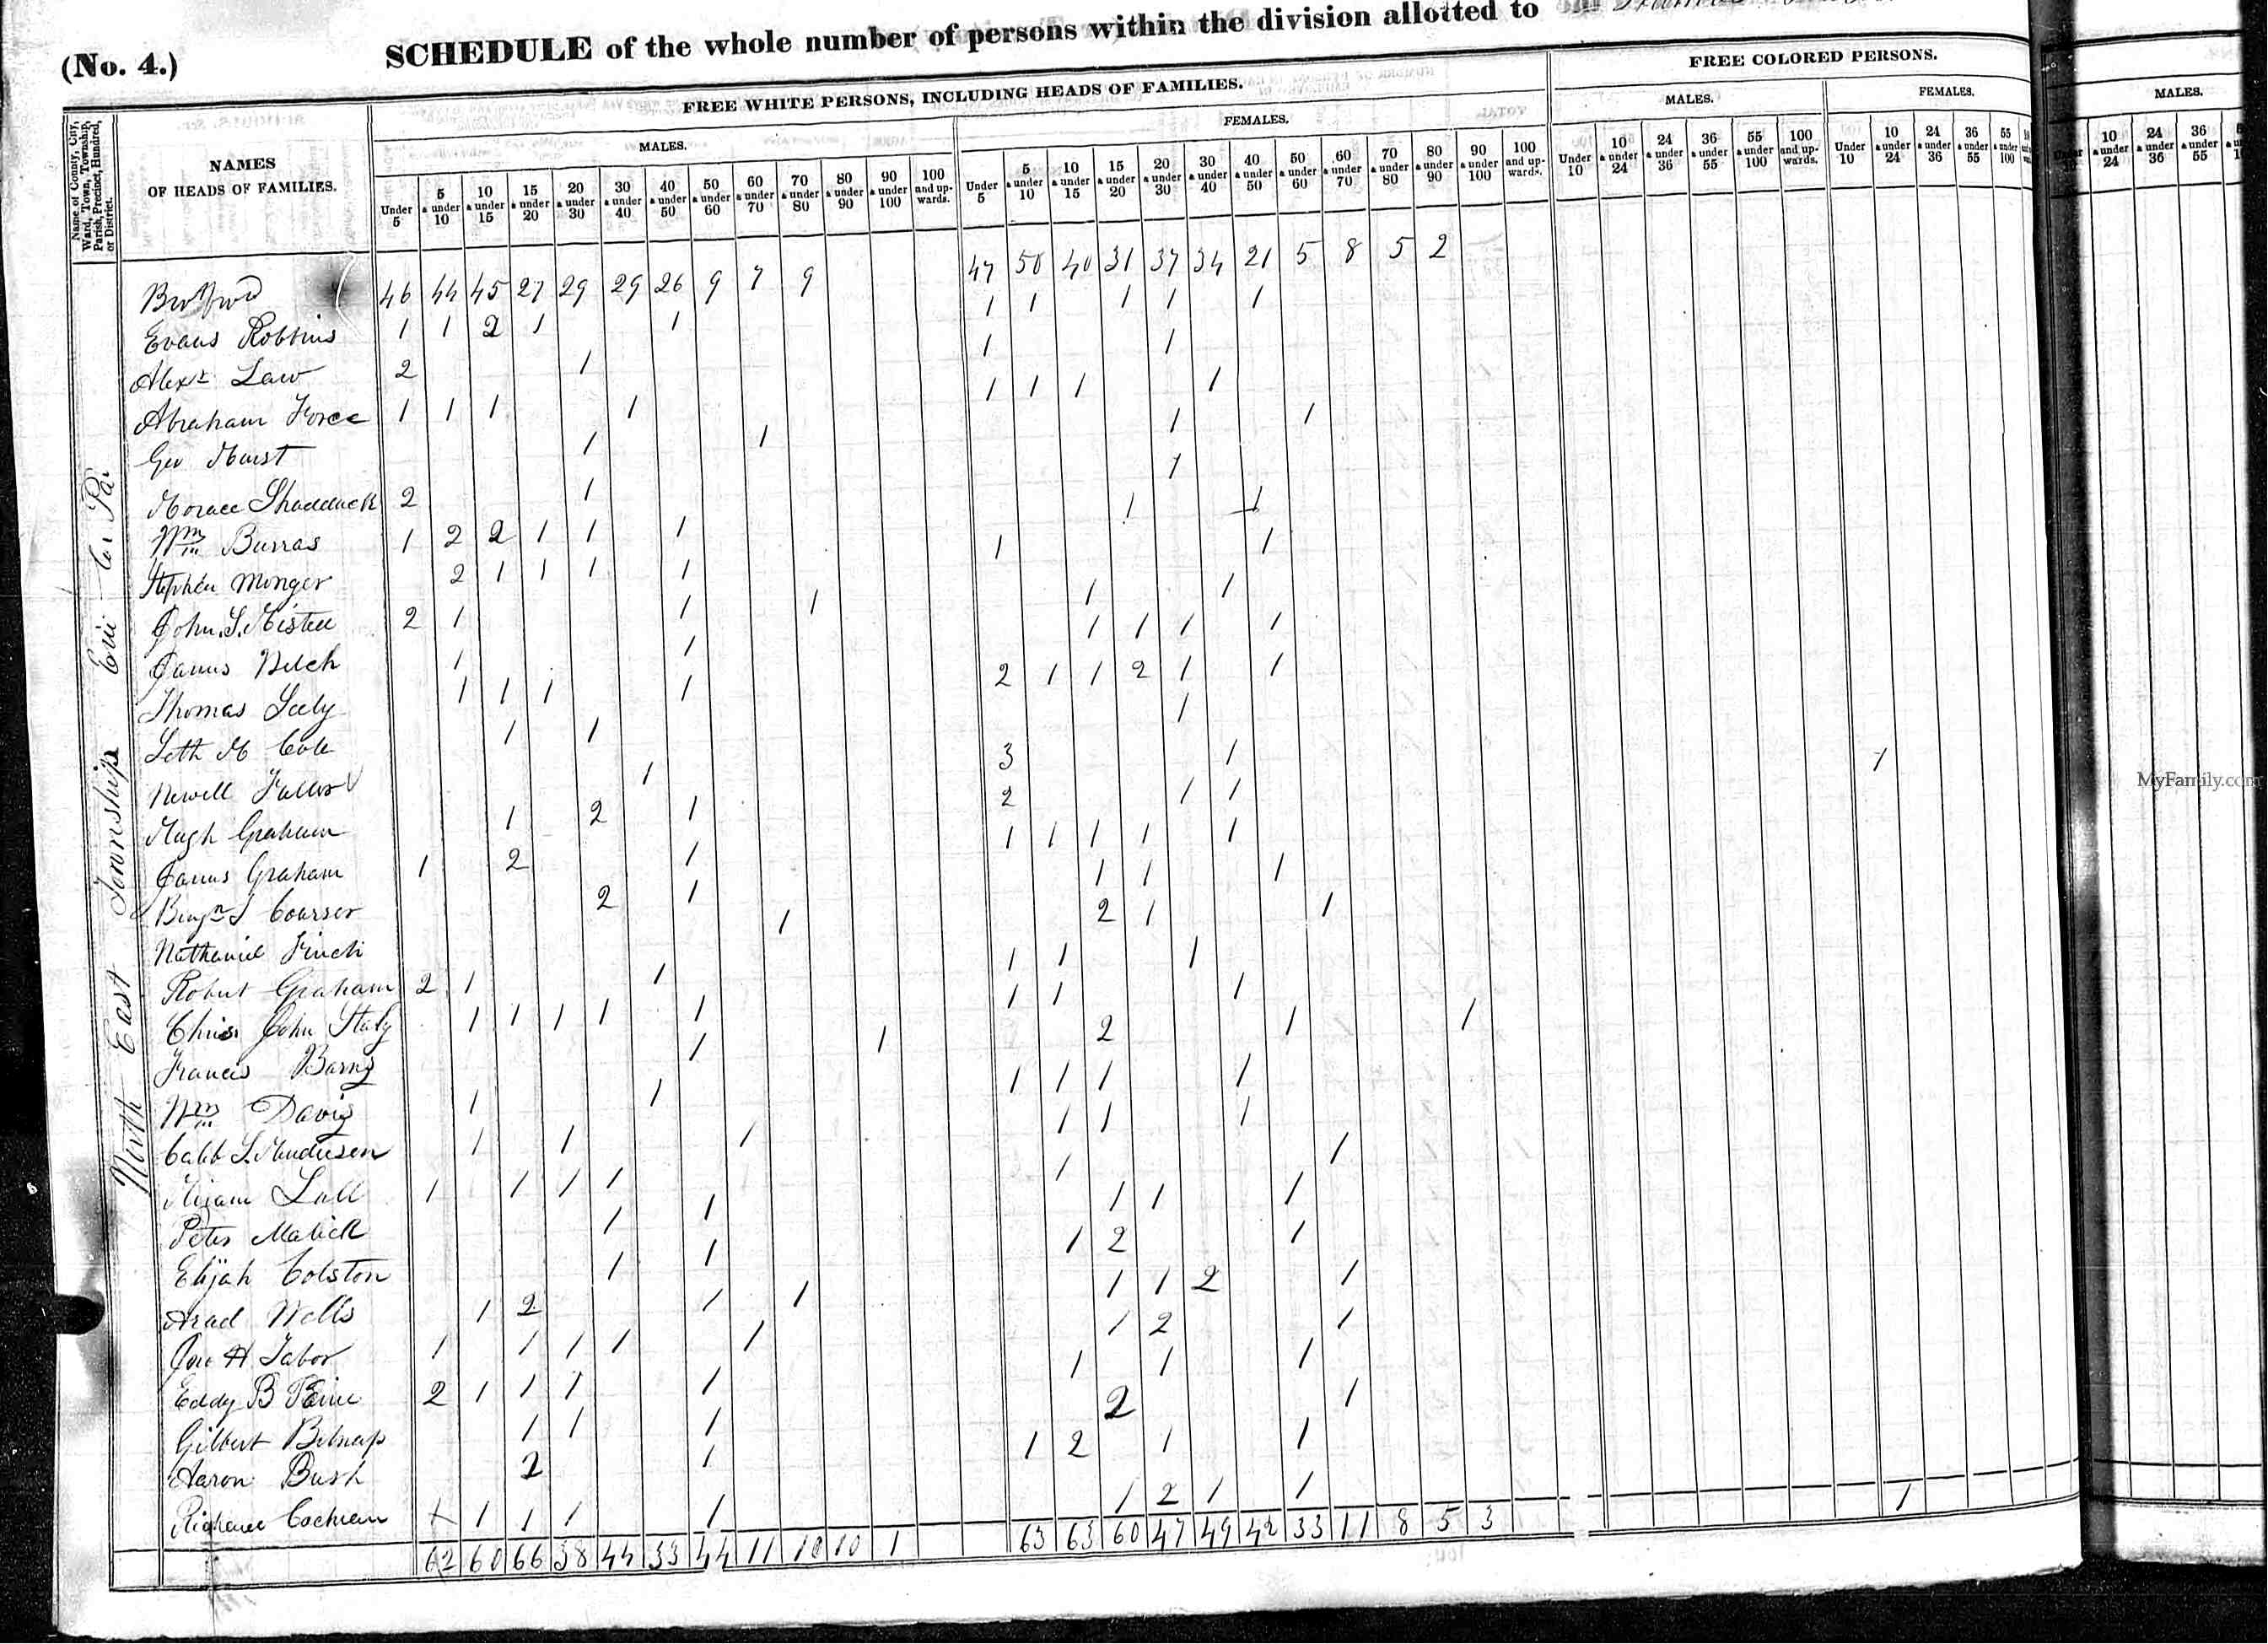 (No. 4.)
SCHEDULE of the whole number of persons within the division allotted to
FREE WHITE PERSONS, INCLUDING HEADS OF FAMILIES.
FREE COLORED PERSONS.
MALES.
FEMALES.
MALES.
FEMALES.
MALES.
Name of County, City, Ward, Town, Township, Parish, Precinct, Hundred, or District.
NAMES
OF HEADS OF FAMILIES.
Under 5
5 & under 10
10 & under 15
15 & under 20
20 & under 30
30 & under 40
40 & under 50
50 & under 60
60 & under 70
70 & under 80
80 & under 90
90 & under 100
100 and upwards.
Under 5
5 & under 10
10 & under 15
15 & under 20
20 & under 30
30 & under 40
40 & under 50
50 & under 60
60 & under 70
70 & under 80
80 & under 90
90 & under 100
100 and upwards.
Under 10
10 & under 24
24 & under 36
36 & under 55
55 & under 100
100 and upwards.
Under 10
10 & under 24
24 & under 36
36 & under 55
55 & under 100
10 & under 24
24 & under 36
36 & under 55
North East Township Erie Co. Pa
46 44 45 27 29 29 26 9 7 9 47 50 40 31 37 34 21 5 8 5 2
Evans Robbins 1 1 2 1 1 1 1 1 1 1
Alexr Law 2 1 1 1
Abraham Force 1 1 1 1 1 1 1 1
Geo Hurst 1 1 1 1
Horace Shadduck 2 1 1
Wm Burras 1 2 2 1 1 1 1 1
Stephen Monger 2 1 1 1 1 1 1
John S. 2 1 1 1 1 1
James 1 1 1 1 1 1
Thomas Seely 1 1 1 1 2 1 1 2 1 1
Seth M Cole 1 1 1
Newell 1 3 1 1
Hugh Graham 1 2 1 2 1 1
James Graham 1 2 1 1 1 1 1 1
Benjn S Courser 2 1 1 1 1
Nathaniel Finch 1 2 1 1
Robert Graham 2 1 1 1 1 1
John Staly 1 1 1 1 1 1 1 1
Francis Barns 1 1 2 1 1
Wm Davis 1 1 1 1 1 1
Caleb S. 1 1 1 1 1 1
Hiram Lull 1 1 1 1 1 1
Peter Malick 1 1 1 1 1
Elijah Colston 1 1 1 2 1
Arad Wells 1 2 1 1 1 1 2 1
H Tabor 1 1 1 1 1 1 2 1
Eddy B 2 1 1 1 1 1 1 1
Gilbert Belnap 1 1 1 2 1
Aaron Bush 2 1 1 2 1 1
Cochran 1 1 1 1 1 2 1 1
62 60 66 38 44 33 44 11 10 10 1 63 63 60 47 49 42 33 11 8 5 3 1
MyFamily.com